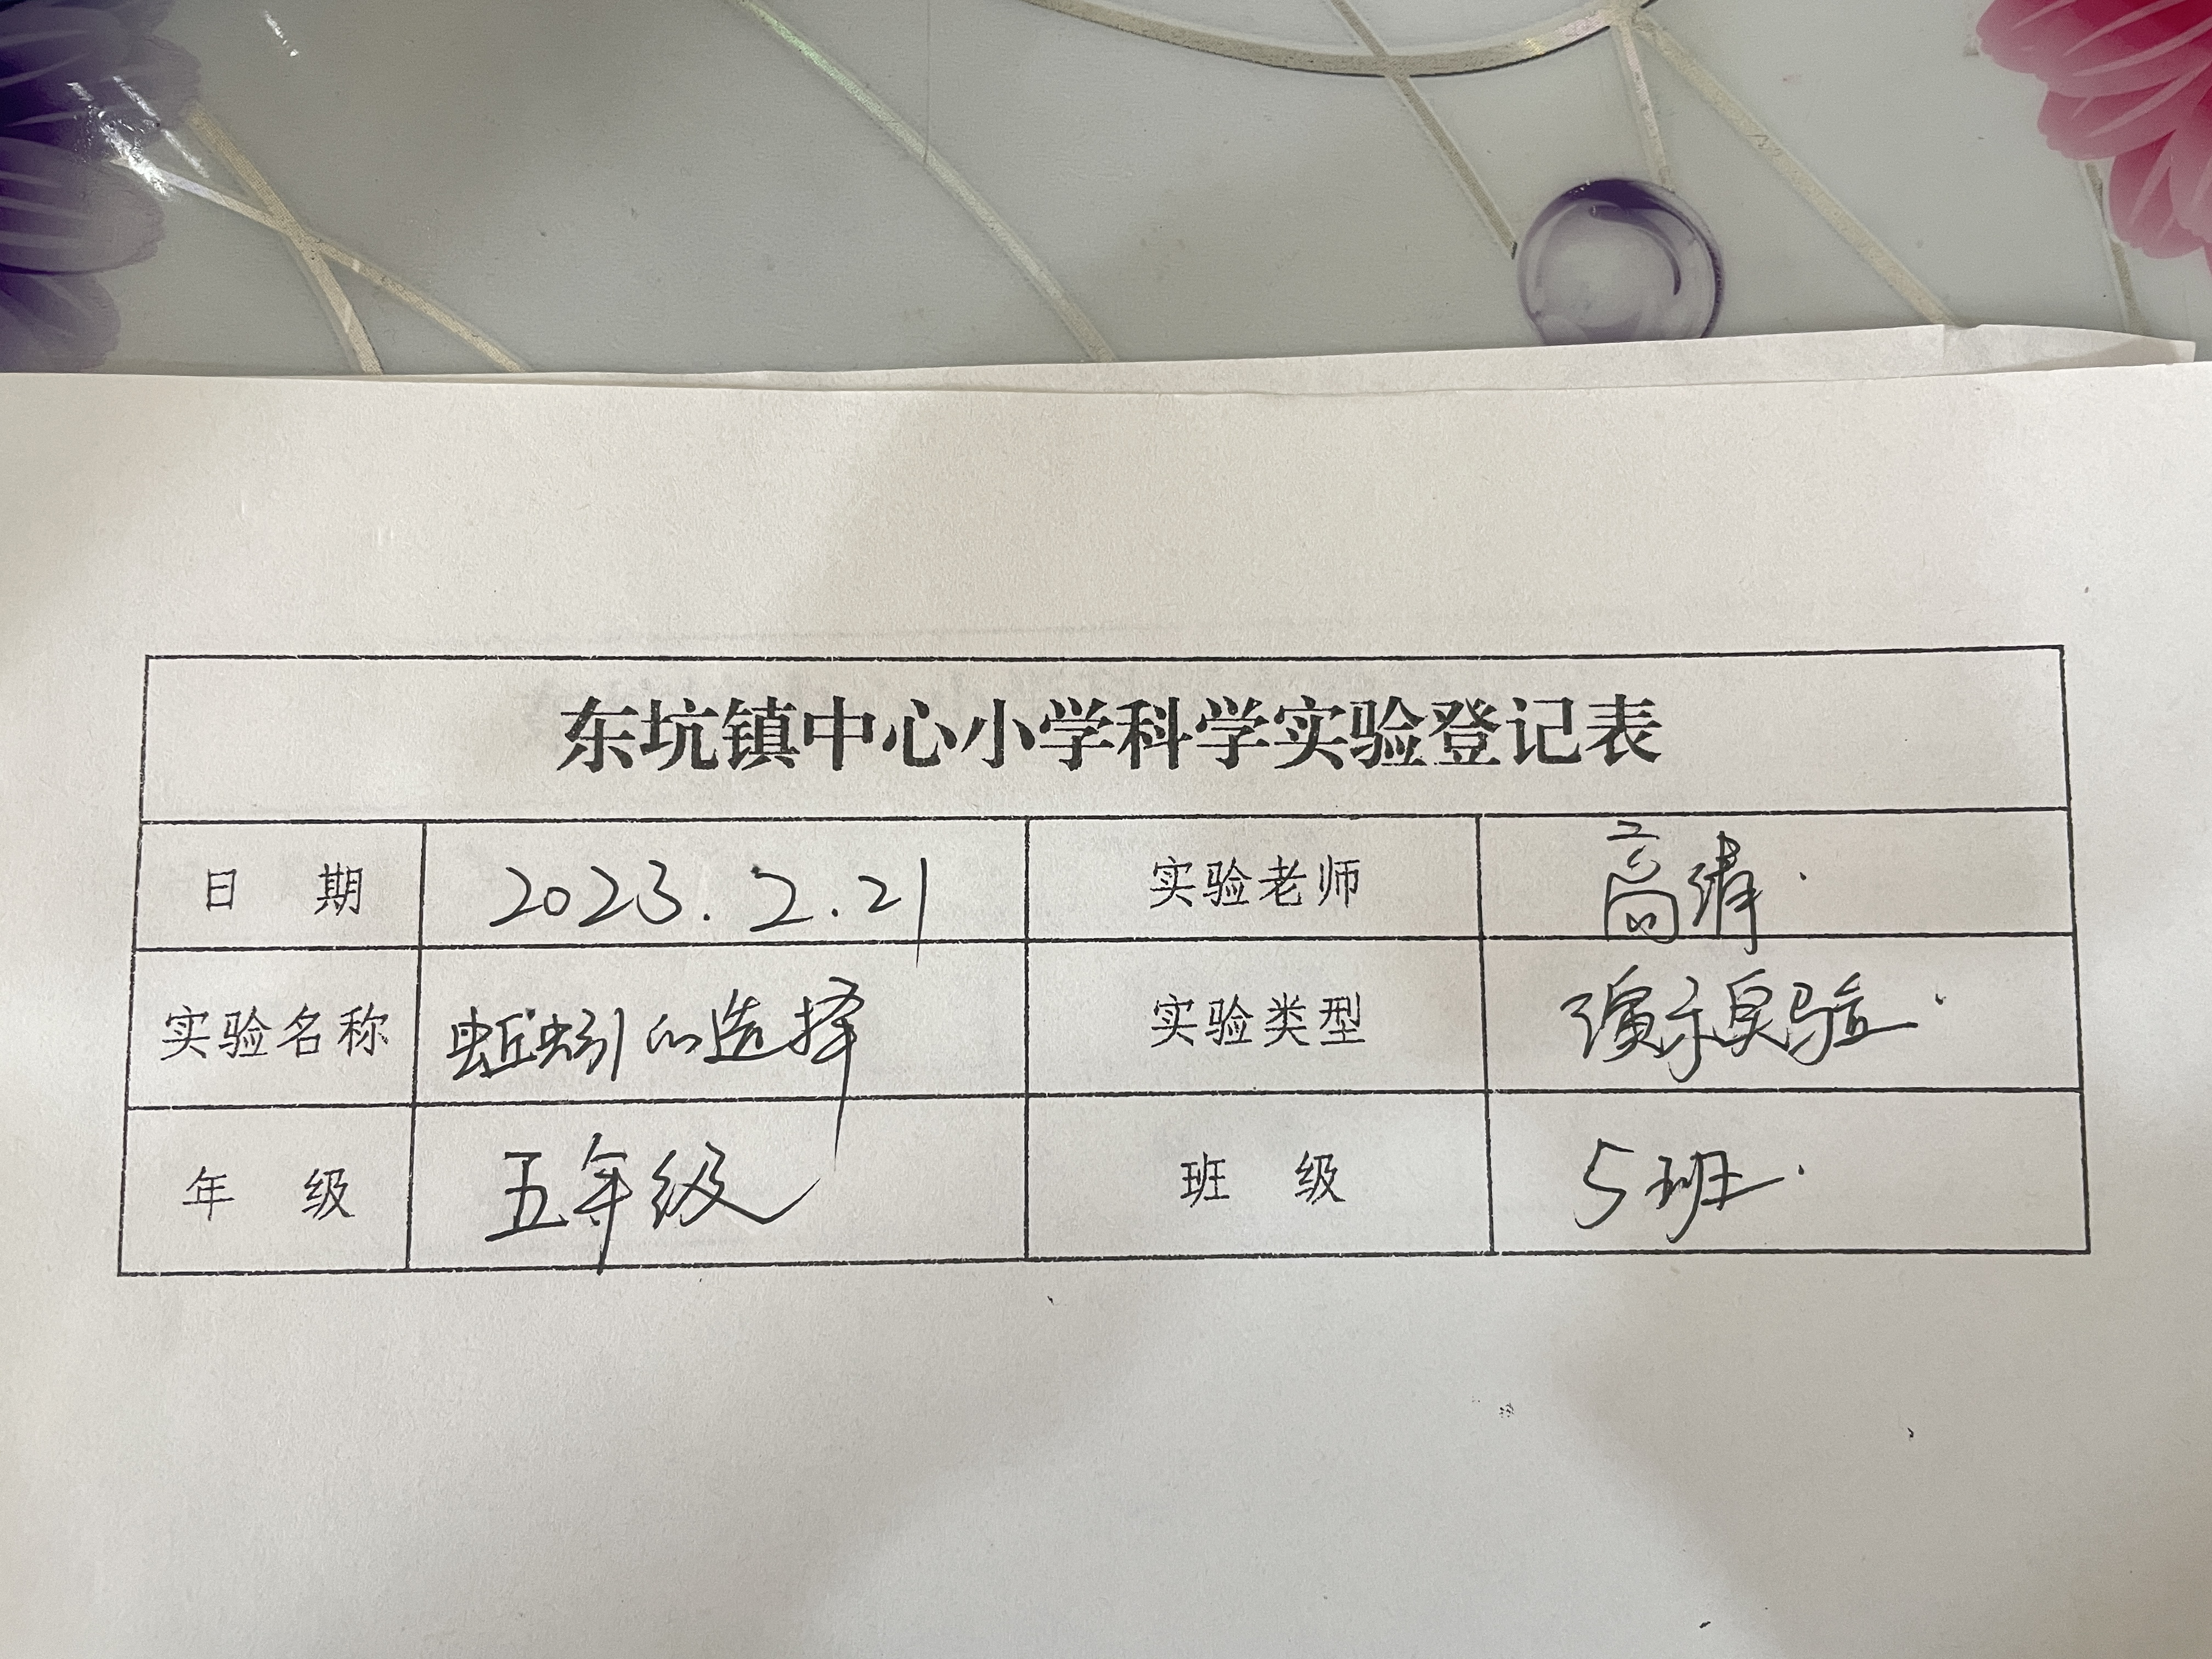 东坑镇中心小学科学实验登记表
日 期 2023.2.21 实验老师 高
实验名称 蚯蚓的选择 实验类型 演示实验.
年 级 五年级 班 级 5班.